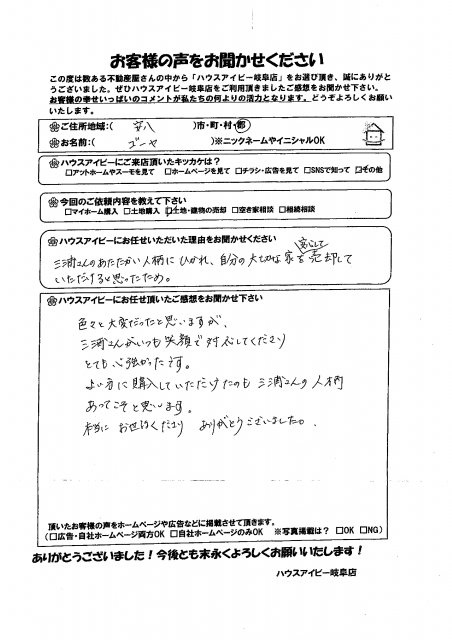 お客様の声をお聞かせください
この度は数ある不動産屋さんの中から「ハウスアイビー岐阜店」をお選び頂き、誠にありがと
うございました。ぜひハウスアイビー岐阜店をご利用頂きましたご感想をお聞かせ下さい。
お客様の幸せいっぱいのコメントが私たちの何よりの活力となります。どうぞよろしくお願い
いたします。
ご住所地域:( 安八 )市・町・村・郡
お名前:( ゴーヤ )※ニックネームやイニシャルOK
ハウスアイビーにご来店頂いたキッカケは?
□アットホームやスーモを見て □ホームページを見て □チラシ・広告を見て □SNSで知って ☑その他
今回のご依頼内容を教えて下さい
□マイホーム購入 □土地購入 ☑土地・建物の売却 □空き家相談 □相続相談
ハウスアイビーにお任せいただいた理由をお聞かせください
三浦さんのあたたかい人柄にひかれ、自分の大切な家を安心して売却して
いただけると思ったため。
ハウスアイビーにお任せ頂いたご感想をお聞かせ下さい
色々と大変だったと思いますが、
三浦さんがいつも笑顔で対応してくださり
とても心強かったです。
よい方に購入していただけたのも三浦さんの人柄
あってこそと思います。
本当にお世話くださり ありがとうございました。
頂いたお客様の声をホームページや広告などに掲載させて頂きます。
(□広告・自社ホームページ両方OK □自社ホームページのみOK ※写真掲載は? □OK □NG)
ありがとうございました!今後とも末永くよろしくお願いいたします!
ハウスアイビー岐阜店